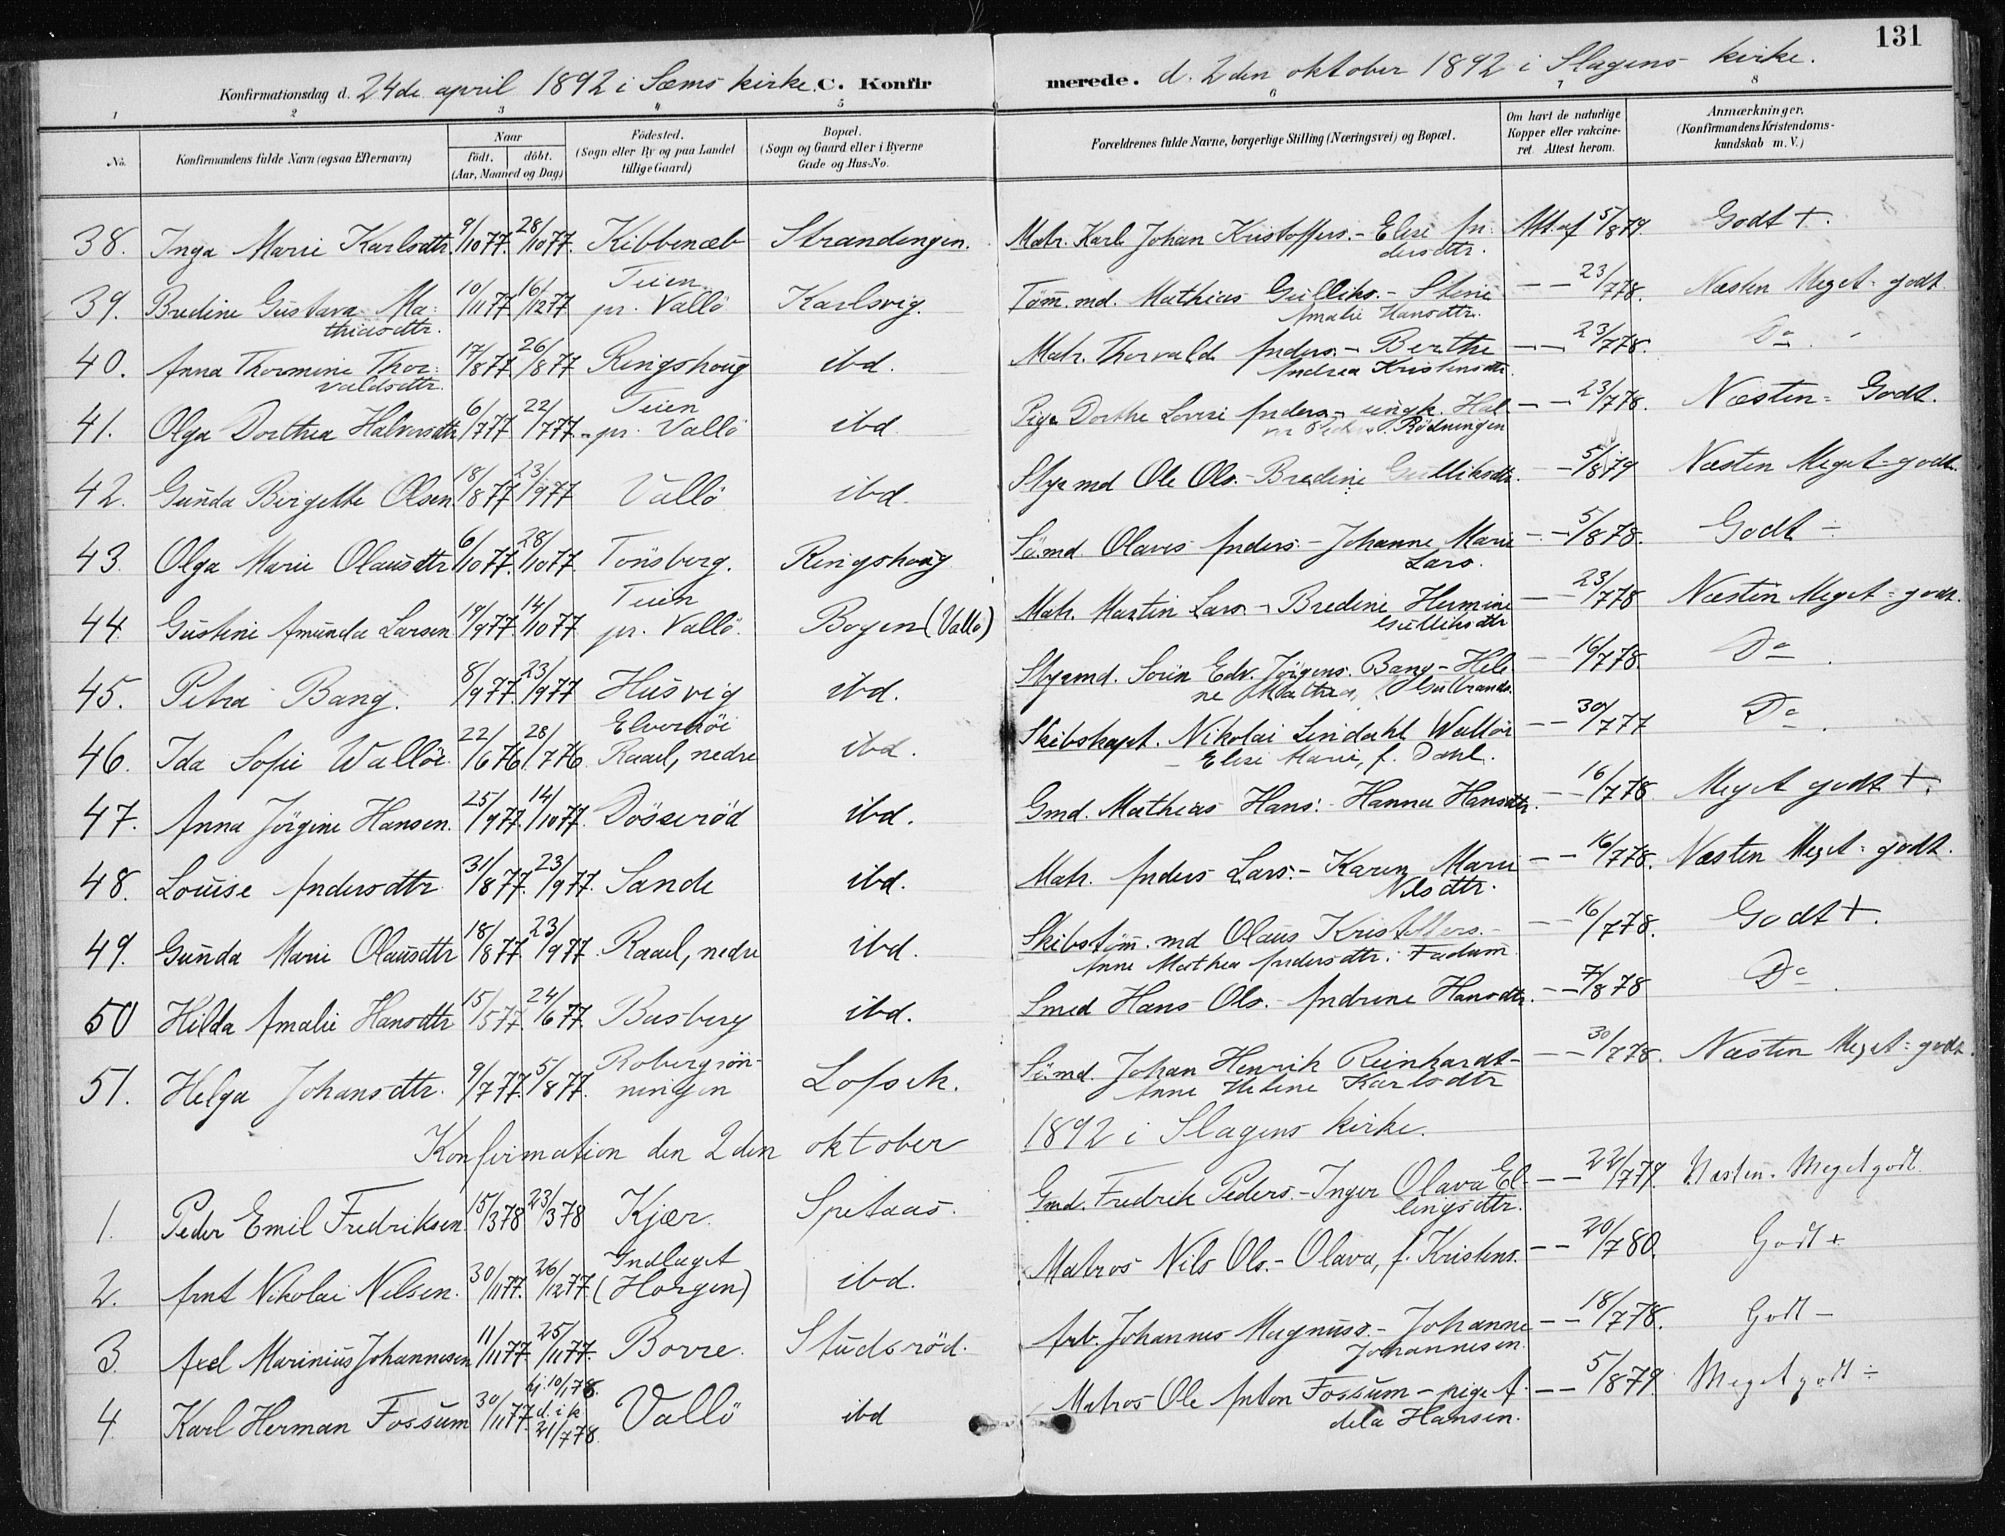 131
Konfirmationsdag d. 24de april 1892 i Sæms kirke. C. Konfirmerede. d. 2den oktober 1892 i Slagens kirke.
1 2 3 4 5 6 7 8
No. Konfirmandens fulde Navn (ogsaa Efternavn) Naar født. døbt. (Aar, Maaned og Dag) Fødested. (Sogn eller By og paa Landet tillige Gaard) Bopæl. (Sogn og Gaard eller i Byerne Gade og Hus-No. Forældrenes fulde Navne, borgerlige Stilling (Næringsvei) og Bopæl. Om havt de naturlige Kopper eller vakcineret. Attest herom. Anmærkninger. (Konfirmandens Kristendomskundskab m. V.)
38. Inga Marie Karlsdtr. 9/10 77. 28/10 77. Kibbenæb Strandengen. Matr. Karl Johan Kristoffers. - Elise Andersdtr. Att. af 5/8 79. Godt +.
39. Bredine Gustava Mathiasdtr. 10/11 77 16/12 77 Teien pr. Vallö Karlsvig. Tömm. md. Mathias Gulliks. - Stine Amalie Hansdtr. — — 23/7 78. Næsten Meget-godt.
40. Anna Thormine Thorvaldsdtr. 17/8 77 26/8 77 Ringshoug ibd. Matr. Thorvald Anders. - Berthe Andrea Kristensdtr. — — 23/7 78. Do.
41. Olga Dorthea Halvorsdtr 6/7 77 22/7 77. Teien pr. Vallö ibd. Pige Dorthe Lovise Anders. - ungk. Hal- Rödningen — — 23/7 78. Næsten-Godt.
42. Gunda Birgette Olsen. 18/8 77. 23/9 77 Vallö ibd. Styrmd Ole Ols. - Bredine Gulliksdtr. — 5/8 79 Næsten Meget-godt.
43. Olga Marie Olausdtr 6/10 77. 28/10 77. Tönsberg. Ringshoug Sömd. Olaves Anders. - Johanne Marie Lars. — 5/8 78. Godt ÷
44. Gustine Amunda Larsen 19/9 77. 14/10 77 Teien pr. Vallö. Bogen (Vallö) Matr. Martin Lars. - Bredine Hermine Gulliksdtr — 23/7 78 Næsten Meget-godt.
45. Petra Bang. 8/9 77. 23/9 77 Husvig ibd. Styrmd. Sörin Edv. Jörgens. Bang - Helene Mathea, Gulbrands. — 16/7 78 Do.
46. Ida Sofie Wallöe. 22/6 76 28/7 76. Elverhöi Raael, nedre ibd. Skibskapt. Nikolai Lindahl Wallöe - Elise Marie, f. Dahl. — — 30/7 77 Do.
47. Anna Jörgine Hansen. 25/9 77. 14/10 77. Dösseröd ibd. Gmd. Mathias Hans. - Hanna Hansdtr. — — 16/7 78. Meget godt +.
48. Louise Andersdtr. 31/8 77. 23/9 77. Sande ibd. Matr. Anders Lars. - Karen Marie Nilsdtr. — — 16/7 78. Næsten Meget-godt.
49. Gunda Marie Olausdtr 18/8 77. 23/9 77. Raael, nedre ibd. Skibstöm. md Olaus Kristoffers. - Anne Mathea Andersdtr. Fadum — — 16/7 78. Godt +.
50 Hilda Amalie Hansdtr 15/5 77. 24/6 77. Basberg ibd. Smed Hans Ols. - Andrine Hansdtr. — — 7/8 78 Do.
51. Helga Johansdtr. 9/7 77. 5/8 77. Robergrönningen Lofsek. Sömd. Johan Henrik Reinhardt - Anne Helene Karlsdtr — — 30/7 78. Næsten Meget-godt.
Konfirmation den 2den oktober 1892 i Slagens kirke.
1. Peder Emil Fredriksen. 15/3 78 23/3 78 Kjær. Spetaas. Gmd. Fredrik Peders. - Inger Olava Ellingsdtr. — — 22/7 79 Næsten. Meget godt.
2. Arnt Nikolai Nilsen. 30/11 77. 26/12 77. Indlaget (Horgen) ibd. Matros Nils Ols. - Olava, f. Kristens. — — 20/7 80. Godt +
3. Axel Marinius Johannesen 11/11 77. 25/11 77. Borre. Studsröd. Arb. Johannes Magnuss. - Johanne Johannesen. — — 18/7 78. Godt —
4. Karl Herman Fossum 30/11 77. hj. 10/1 78. d. i k 21/7 78. Vallö ibd Matros Ole Anton Fossum - pige Adela Hansen. — — 5/8 79. Meget godt ÷